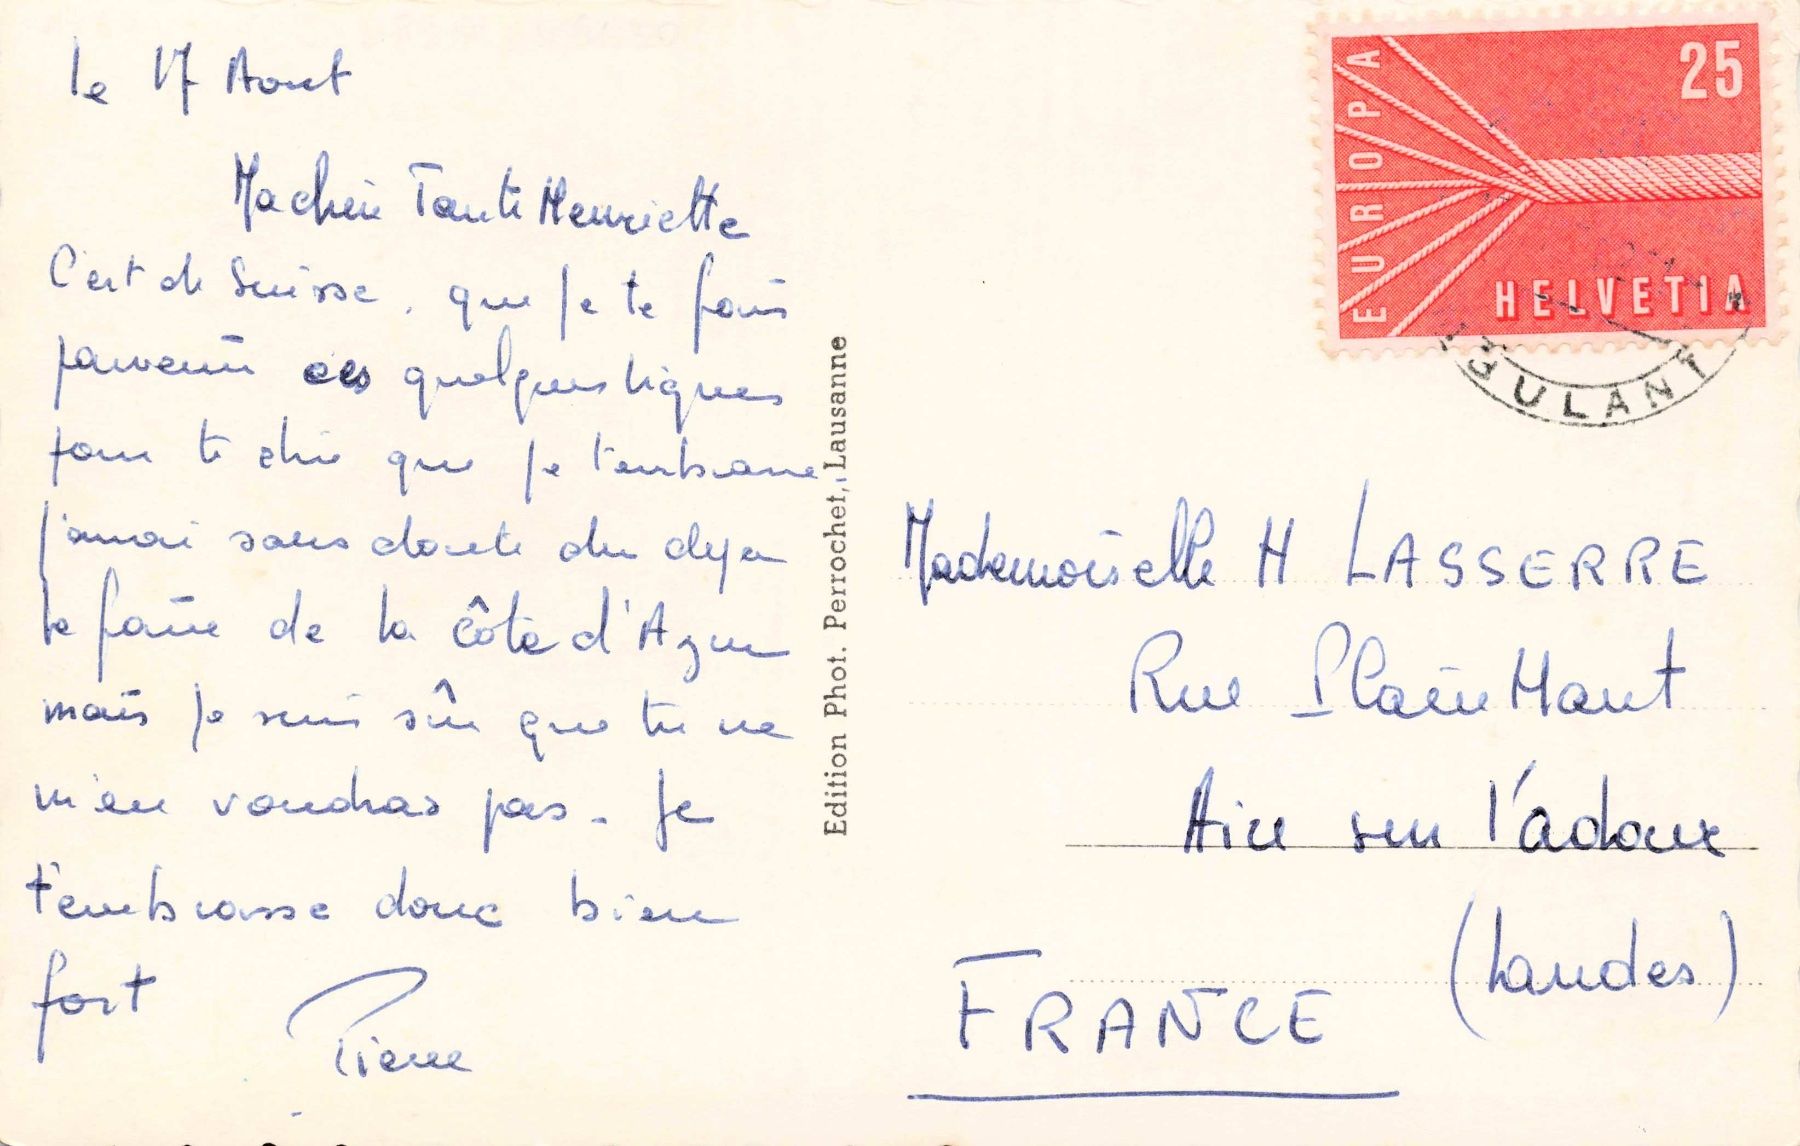 le 17 Aout
Ma chère Tante Henriette
C'est de Suisse, que je te fais
parvenir ces quelques lignes
pour te dire que je t'embrasse
j'aurai sans doute du deja
le faire de la côte d'Azur
mais je suis sûr que tu ne
m'en voudras pas. Je
t'embrasse donc bien
fort
Pierre
Edition Phot. Perrochet, Lausanne
EUROPA
25
HELVETIA
BULANT
Mademoiselle H LASSERRE
Rue Plain Haut
Aire sur l'adour
(Landes)
FRANCE